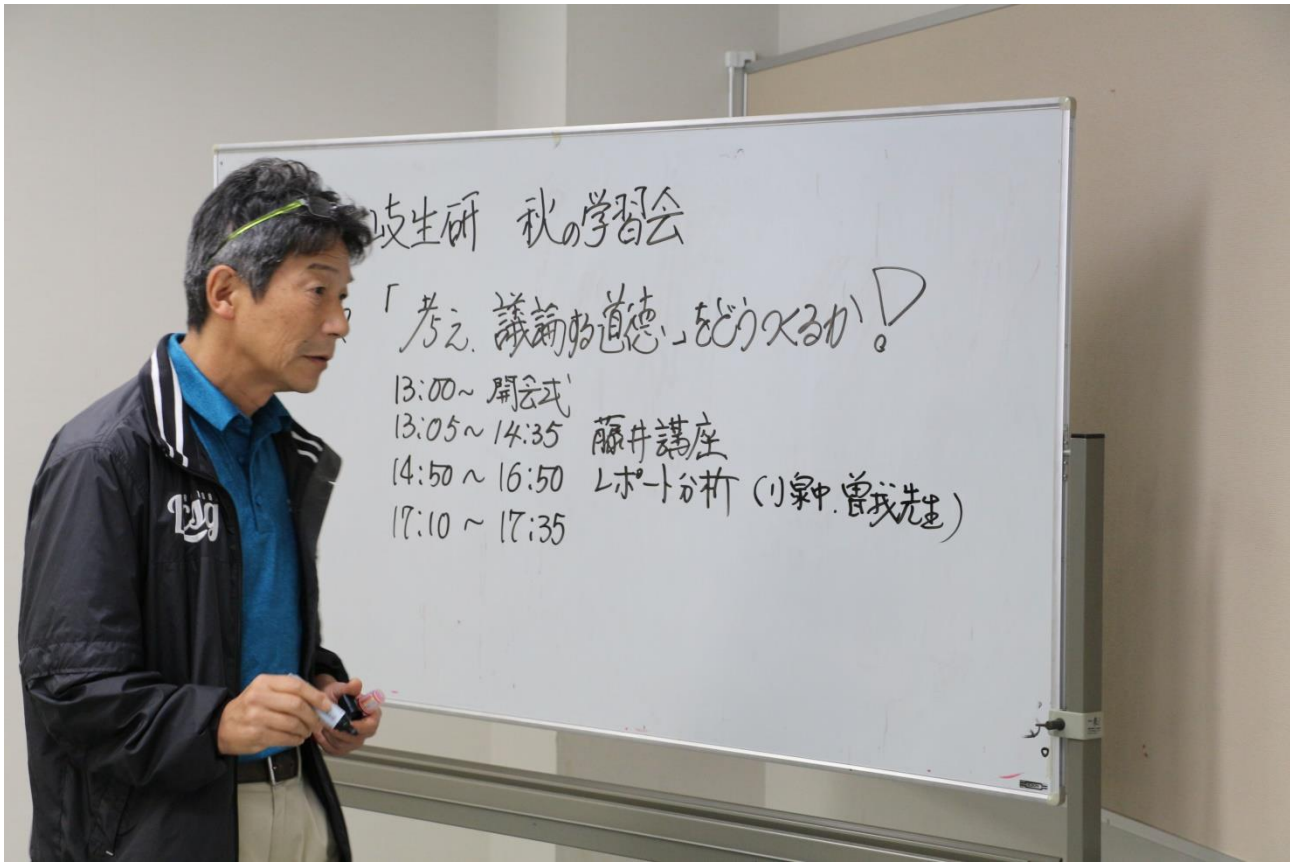 岐生研 秋の学習会
「考え、議論する道徳」をどうつくるか!
13:00~ 開会式
13:05~14:35 藤井講座
14:50~16:50 レポート分析(小泉中.曽我先生)
17:10~17:35